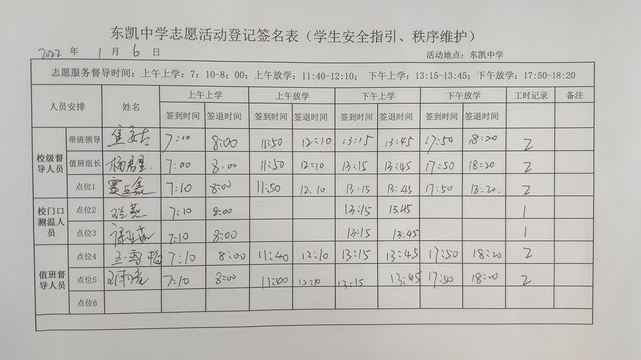 东凯中学志愿活动登记签名表（学生安全指引、秩序维护）
2022 年 1 月 6 日 活动地点：东凯中学
志愿服务督导时间：上午上学：7：10-8：00；上午放学：11:40-12:10； 下午上学：13:15-13:45；下午放学：17:50-18:20
人员安排 姓名 上午上学 上午放学 下午上学 下午放学 工时记录 备注
签到时间 签退时间 签到时间 签退时间 签到时间 签退时间 签到时间 签退时间
校级督导人员 带班领导 7:00 8:00 11:50 12:10 13:15 13:45 17:50 18:20 2
值班组长 7:00 8:00 11:50 12:10 13:15 13:45 17:50 18:20 2
点位1 7:10 8:00 11:50 12.10 13:15 13:45 17:50 18:20 2
校门口测温人员 点位2 7:10 8:00 13:15 13:45 1
点位3 7:10 8:00 13:15 13:45 1
值班督导人员 点位4 7:10 8:00 11:40 12:10 13:15 13:45 17:50 18:20 2
点位5 7:10 8:00 12:10 13:15 13:45 2
点位6